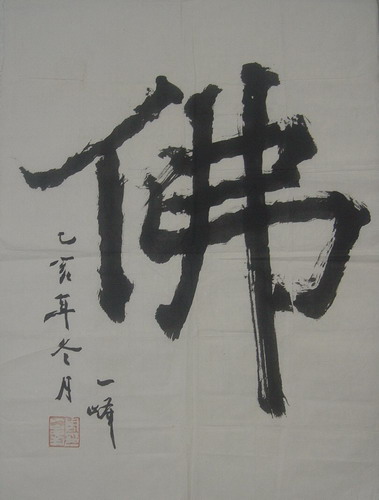 佛
乙亥年冬月
一峰